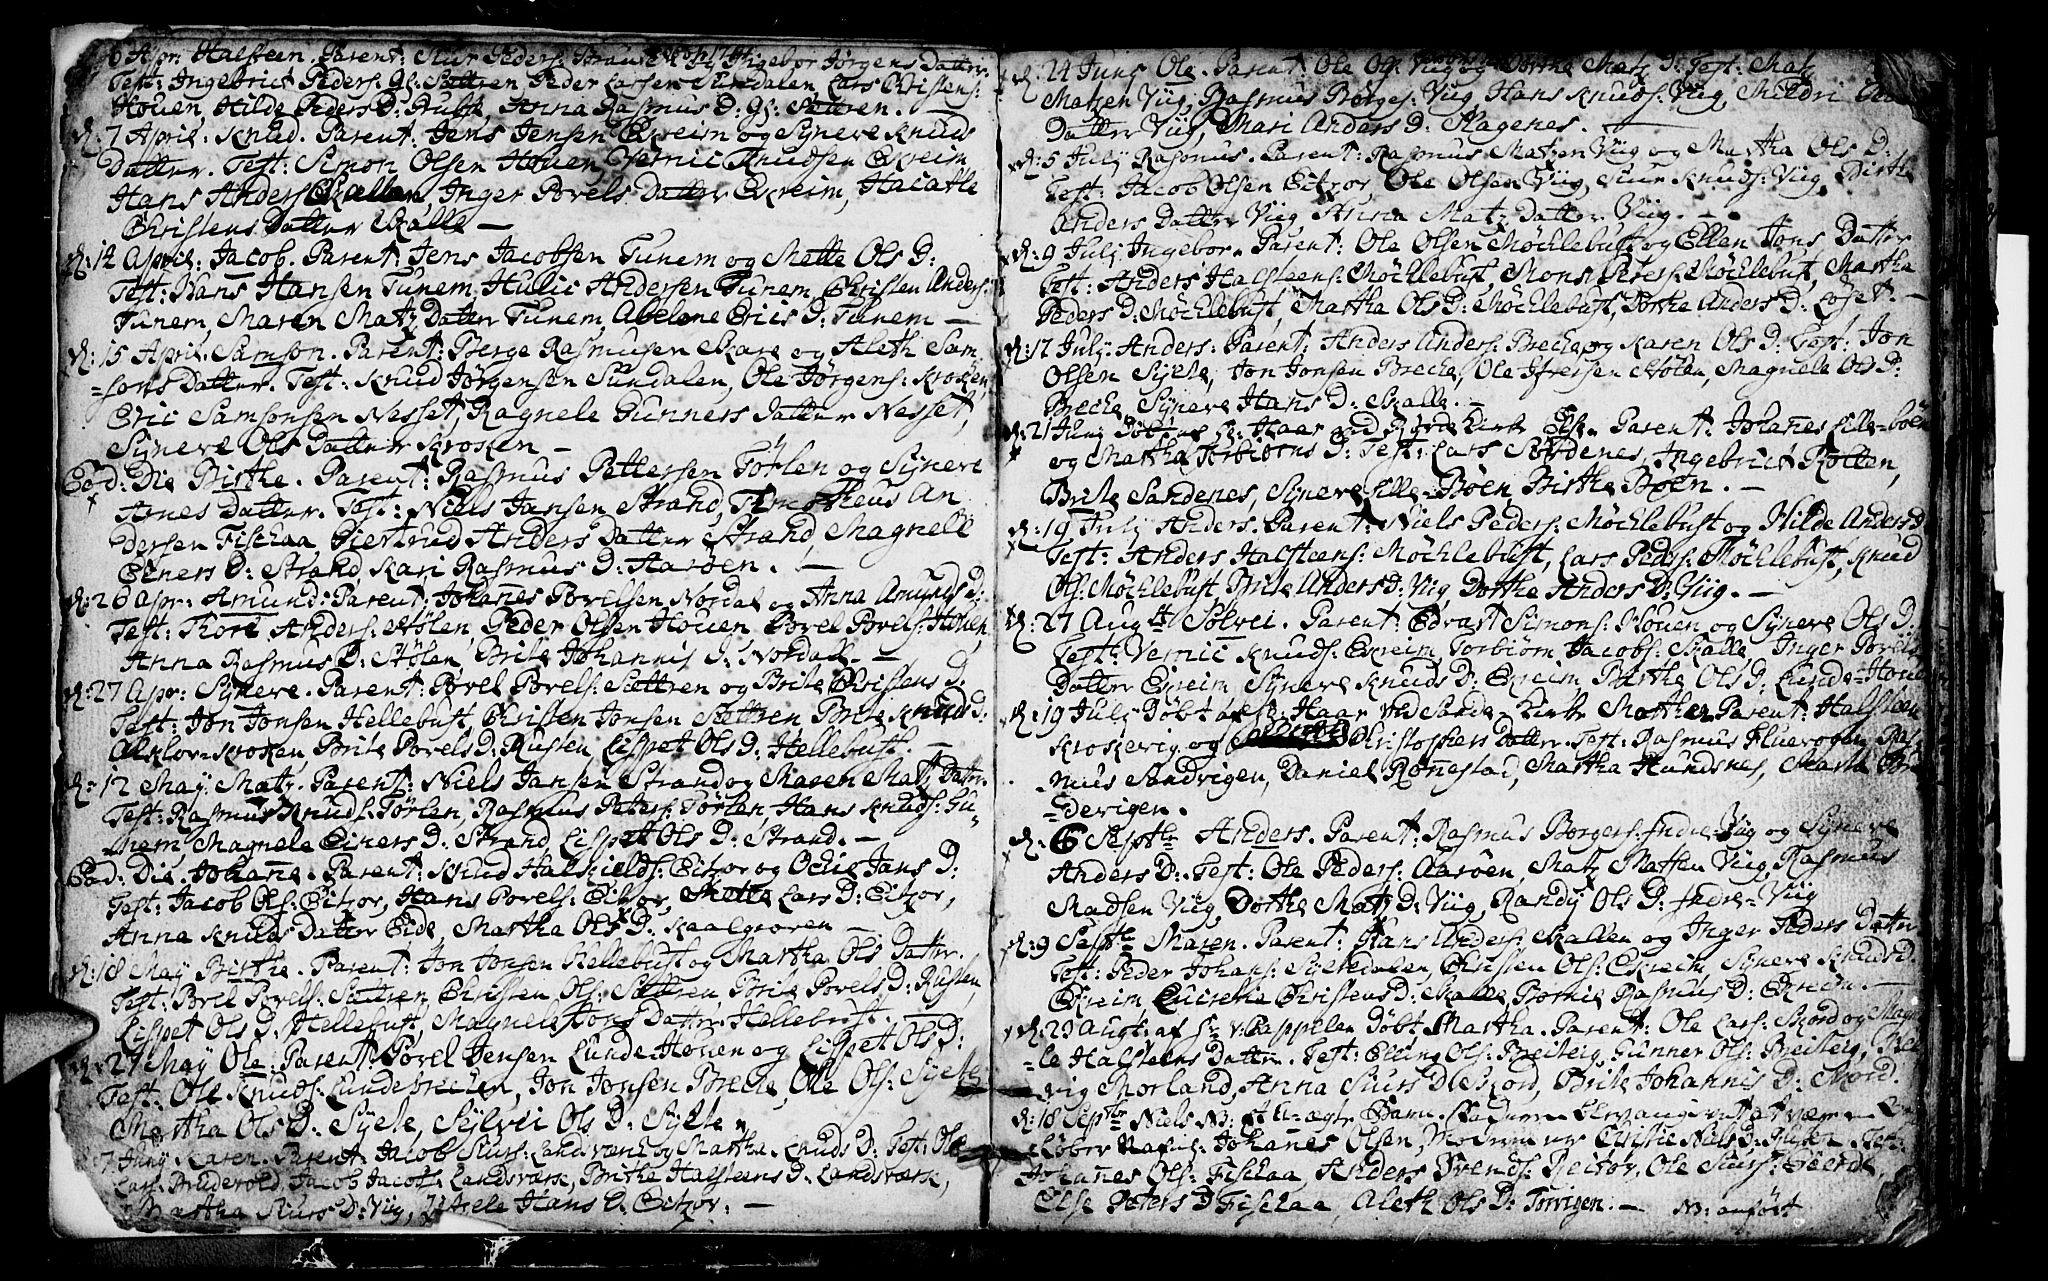 6 Apr: Halsteen. Parent: Siur Peders: Ingebor Jørgens Datter.
Test: Ingebrict Peders: Gl: Sættren, Peder Larsen Sundalen, Lars Christens:
Houen, Hilde Peders D: Anna Rasmus D: Gl: Sættren. —
d: 7 April: Knud. Parent: Jens Jensen Ekreim og Synere Knuds
Datter. Test: Simon Olsen Houen, Vernic Knudsen Ekreim,
Hans Anders: Skallen, Inger Povels Datter Ekreim,
Christens Datter Skalle —
d: 14 April: Jacob. Parent: Jens Jacobsen Tunem og Mette Ols D:
Test: Hans Hansen Tunem, Andersen Tunem, Christen Anders:
Tunem, Maren Matz Datter Tunem, Abelone Erics D: Tunem —
d: 15 April: Samson. Parent: Berge Rasmusen Skare og Aleth Sam-
=sons Datter. Test: Knud Jørgensen Sundalen, Ole Jørgens: Kroken,
Eric Samsonsen Nesset, Ragnele Gunners Datter Nesset,
Synere Ols Datter Kroken —
Eod: Die Birthe. Parent: Rasmus Pettersen Tørlen og Synere
Arnes Datter. Test: Niels Jansen Strand, Timotheus An
dersen Fischaa, Giertrud Anders Datter Strand, Magnele
Einers D: Strand, Kari Rasmus D: Harøen. —
d: 26 Apr: Amund: Parent: Johanes Povelsen Nørdal og Anna Amunds D:
Test: Thore Anders: Stølen, Peder Olsen Houen, Povel Povels: Houen,
Anna Rasmus D: Stølen, Brite Johannis D: Nordal. —
d: 27 Apr: Synere. Parent: Povel Povels: Sættren og Brite Christens D.
Test: Jon Jonsen Hellebust, Christen Jonsen Sættren, Brite Knuds D:
Kroken, Brite Povels D: Rusten, Lisspet Ols D: Hellebust. —
d: 12 May: Matz. Parent: Niels Jansen Strand og Maren Matz Datter.
Test: Rasmus Knuds: Tørlen, Rasmus Peters: Tørlen, Hans Knuds: Tu-
nem, Magnele Einers D: Strand, Lisspet Ols D: Strand. —
Eod: Die. Johane. Parent: Knud Halskields: Eitror og Ochie Jans D:
Test: Jacob Ols: Eitror, Hans Povels: Eitror, Mette Lars D: Eitror,
Anna Knuds Datter Eide, Martha Ols D: —
d: 18 May Birthe. Parent: Jon Jonsen Hellebust og Martha Ols Dattr.
Test: Povel Povels: Sættren, Christen Ols: Sættren, Brite Povels D: Rusten,
Lisspet Ols D: Hellebust, Magnele Jons Datter Hellebust. —
d: 27 May Ole: Parent: Povel Jensen Lunde-Houen og Lisspet Ols D:
Test: Ole Knuds: Lundebrechen, Jon Jonsen Breche, Ole Ols: Sylte
Martha Ols D: Sylte, Sylvei Ols D: Sylte
7 Juny Karen. Parent: Jacob Siurs: Landsværk og Martha Knuds D: Test: Ole
Lars: Bruderold, Jacob Jacobs: Landsværk, Birthe Halsteens D: Landsværk,
Martha Siurs D: Viig, Hans D: Eitror: —
d: 24 Juny Ole. Parent: Ole Ols: Viig og Dorthe Matz D: Test: Matz
Matzen Viig, Rasmus Børges: Viig, Hans Knuds: Viig,
Datter Viig, Mari Anders D: Ragenes. —
d: 5 July Rasmus. Parent: Rasmus Matzen Viig og Martha Ols D:
Test: Jacob Olsen Eitror, Ole Olsen Viig, Siur Knuds: Viig, Birthe
Anders Datter Viig, Anna Matz Datter Viig. —
d: 9 July Ingebor. Parent: Ole Olsen Møchlebust og Ellen Jons Datter
Test: Anders Halsteens: Møchlebust, Mons Møchlebust, Martha
Peders D: Møchlebust, Martha Ols D: Møchlebust, Dorthe Anders D: Løset. —
d: 17 July Anders: Parent: Anders Anders: Breche og Karen Ols D: Test: Jon
Olsen Sylte, Jon Jonsen Breche, Ole Stølen, Magnele Ols D:
Breche, Synere Hans D: Skalle. —
d: 21 Juny Døbt af Hr: Haar ved Røvde Kirke Else. Parent: Johanes Lille-bøen
og Martha Torbiørns D: Test: Lars Sørdenes, Ingebrict Rotten,
Brite Sandenes, Synere Lille-Bøen, Birthe Bøen. —
d: 19 July Anders. Parent: Niels Peders: Møchlebust og Hilde Anders D
Test: Anders Halsteens: Møchlebust, Lars Peders: Møchlebust, Knud
Ols: Møchlebust, Brite Anders D: Viig, Dorthe Anders D: Viig. —
d: 27 Augt: Sølvei. Parent: Edvart Simons: Houen og Synere Ols D.
Test: Vernic Knuds: Ekreim, Torbiørn Jacobs: Skalle, Inger Povels
Datter Ekreim, Synere Knuds D: Ekreim, Birthe Ols D: Lunde-Houen
d: 19 July Døbt af Hr: Haar ved Sande-Kirke Marthe Parent: Halsteen
Krokevig og Christophers Datter. Test: Rasmus Fluevogen, Ras-
mus Sandvigen, Daniel Rønestad, Martha Hundsnes, Maria Bre
=devigen.
d: 6 Septbr Anders. Parent: Rasmus Borgers: Indre-Viig og Synere
Anders D: Test: Ole Peders: Aarøen, Matz Matsen Viig, Rasmus
Madsen Viig, Dorthe Matz D: Viig, Randy Ols D: Indre-Viig
d: 9 Septbr Maren. Parent: Hans Anders: Skallen og Inger Peders Datter.
Test: Peder Johans: Syltedalen, Christen Ols: Ekreim, Synere Knuds D.
Ekreim, Christens D: Skalle, Rasmus D: Ekreim. —
d: 23 Augt: af Hr v: Cappelen Døbt Martha. Parent: Ole Lars: Skord og Magne
=le Halsteens Dattr. Test: Elling Ols: Breiteig, Gunner Ols: Breiteig,
vig Morland, Anna Siurs D: Skord, Brite Johannis D: Skord.
d: 18 Septbr Niels NB: U-ægte Barn. Faderen blev angivet at være en
løber Nafnl: Johanes Olsen, Moderen er Christie Niels D: Test:
Johanes Ols: Fischaa, Anders Svends: Ole Siurs:
Else Peters D: Fischaa, Aleth Ols D: Torvigen. — NB: anført